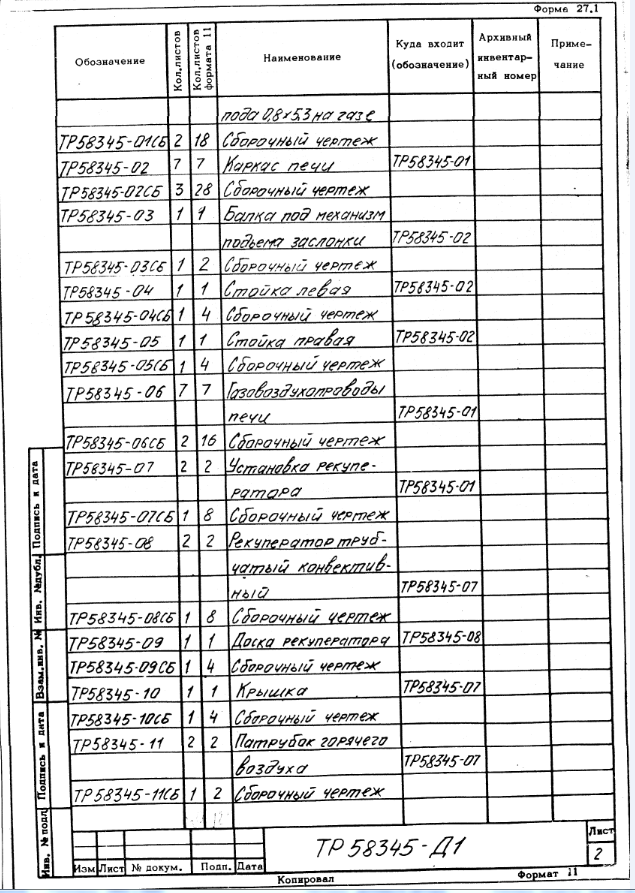 Форма 27.1
Обозначение Кол.листов Кол.листов формата 11 Наименование Куда входит (обозначение) Архивный инвентарный номер Приме-чание
пода 0,8×5,3 на газе
ТР58345-01СБ 2 18 Сборочный чертеж
ТР58345-02 7 7 Каркас печи ТР58345-01
ТР58345-02СБ 3 28 Сборочный чертеж
ТР58345-03 1 1 Балка под механизм
подъема заслонки ТР58345-02
ТР58345-03СБ 1 2 Сборочный чертеж
ТР58345-04 1 1 Стойка левая ТР58345-02
ТР58345-04СБ 1 4 Сборочный чертеж
ТР58345-05 1 1 Стойка правая ТР58345-02
ТР58345-05СБ 1 4 Сборочный чертеж
ТР58345-06 7 7 Газовоздухопроводы
печи ТР58345-01
ТР58345-06СБ 2 16 Сборочный чертеж
ТР58345-07 2 2 Установка рекупе-
ратора ТР58345-01
ТР58345-07СБ 1 8 Сборочный чертеж
ТР58345-08 2 2 Рекуператор труб-
чатый конвектив-
ный ТР58345-07
ТР58345-08СБ 1 8 Сборочный чертеж
ТР58345-09 1 1 Доска рекуператора ТР58345-08
ТР58345-09СБ 1 4 Сборочный чертеж
ТР58345-10 1 1 Крышка ТР58345-07
ТР58345-10СБ 1 4 Сборочный чертеж
ТР58345-11 2 2 Патрубок горячего
воздуха ТР58345-07
ТР58345-11СБ 1 2 Сборочный чертеж
Подпись и дата
Инв. №дубл.
Взам.инв. №
Подпись и дата
Инв. №подл
Изм Лист № докум. Подп. Дата
ТР58345-Д1
Лист
2
Копировал Формат 11